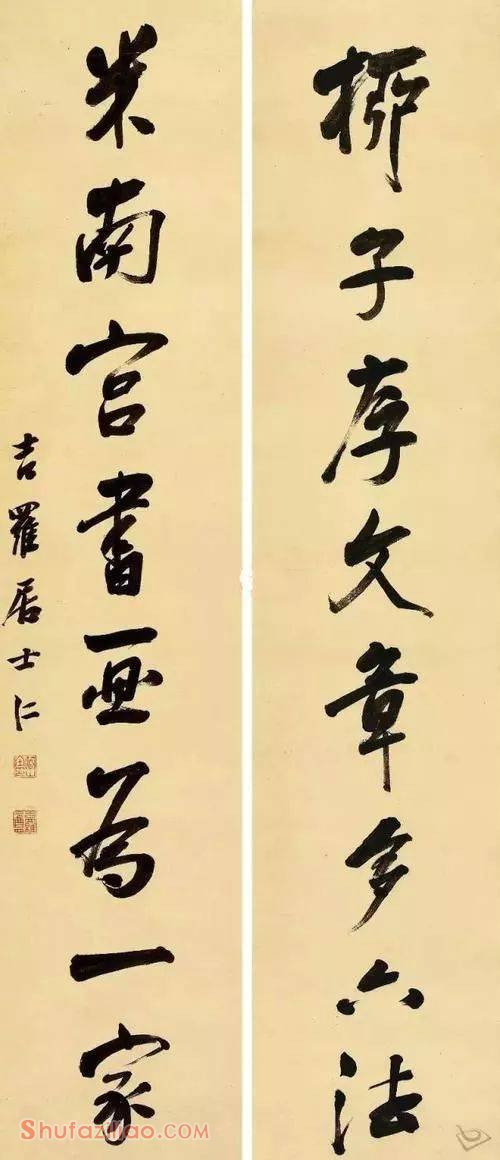 柳子厚文章多六法
米南宫書画為一家
吉羅居士仁
Shufaziliao.com